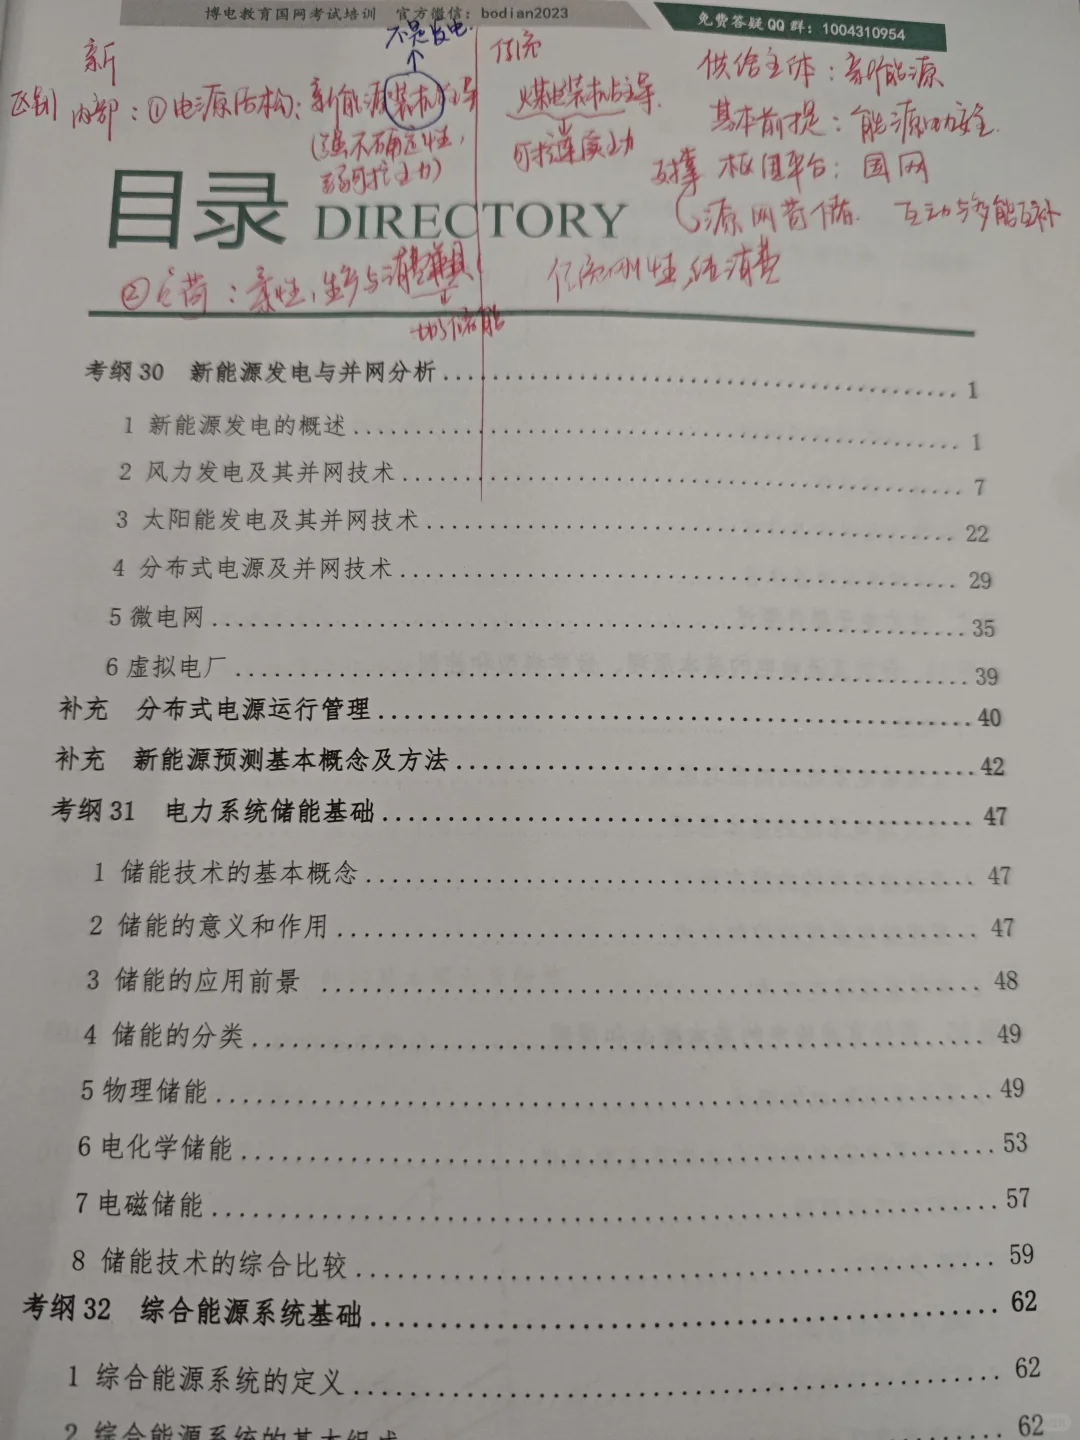 博电教育国网考试培训 官方微信：bodian2023
免费答疑QQ群：1004310954
不是发电
新
传统
供给主体：新能源
区别
内部：①电源结构：新能源装机主导
煤电装机占主导
基本前提：能源电力安全
(强不确定性，
弱可控出力)
可控连续出力
支撑 枢纽平台：国网
源网荷储 互动与多能互补
目录 DIRECTORY
②负荷：柔性，生产与消费兼具
传统刚性，纯消费
储能
考纲30 新能源发电与并网分析 1
1 新能源发电的概述 1
2 风力发电及其并网技术 7
3 太阳能发电及其并网技术 22
4 分布式电源及并网技术 29
5 微电网 35
6 虚拟电厂 39
补充 分布式电源运行管理 40
补充 新能源预测基本概念及方法 42
考纲31 电力系统储能基础 47
1 储能技术的基本概念 47
2 储能的意义和作用 47
3 储能的应用前景 48
4 储能的分类 49
5 物理储能 49
6 电化学储能 53
7 电磁储能 57
8 储能技术的综合比较 59
考纲32 综合能源系统基础 62
1 综合能源系统的定义 62
2 综合能源系统的基本组成 62